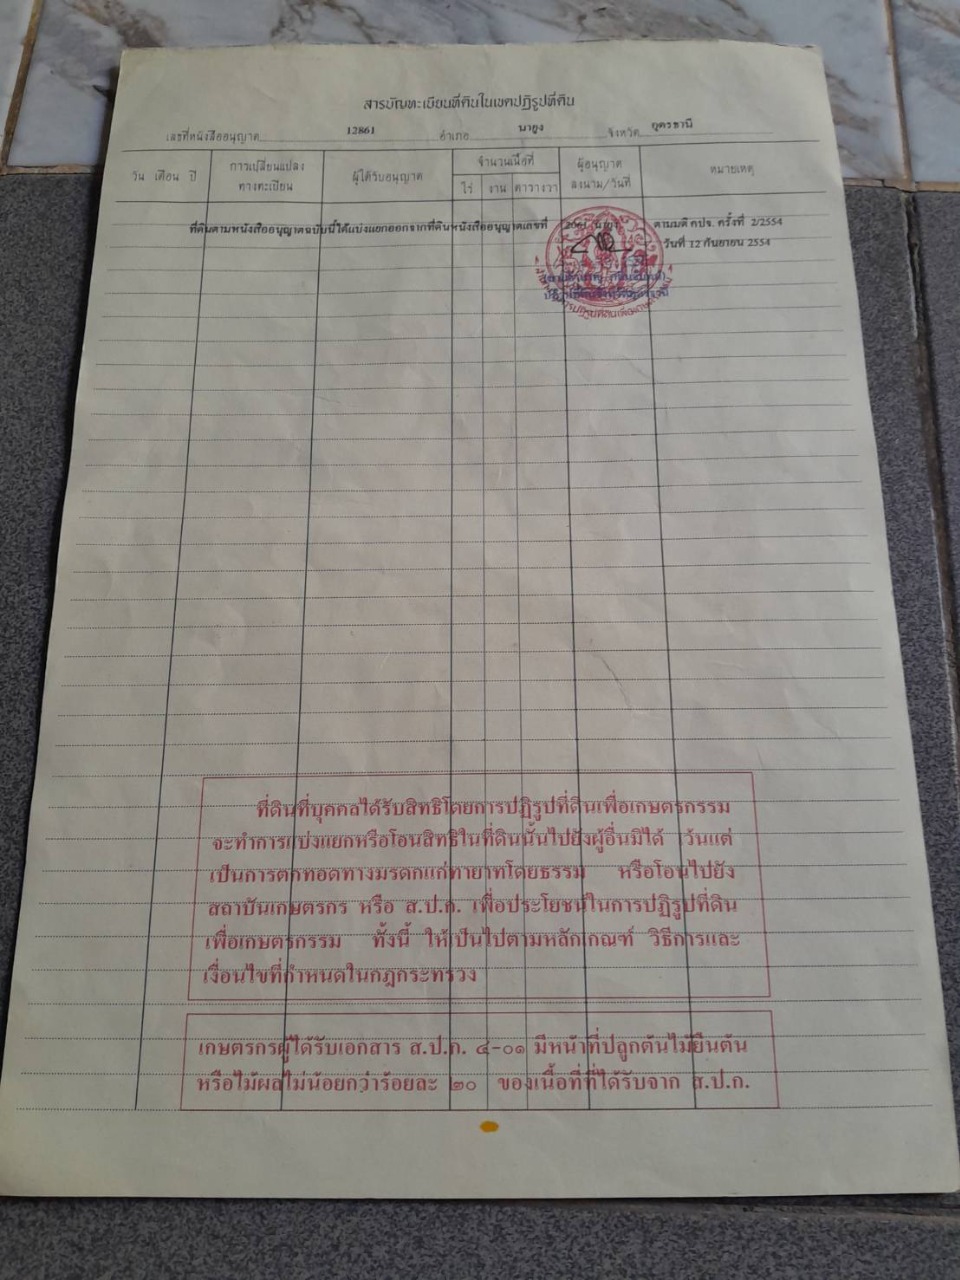 สารบัญทะเบียนที่ดินในเขตปฏิรูปที่ดิน
เลขที่หนังสืออนุญาต 12861 อำเภอ นายูง จังหวัด อุดรธานี
วัน เดือน ปี การเปลี่ยนแปลงทางทะเบียน ผู้ได้รับอนุญาต จำนวนเนื้อที่ ไร่ งาน ตารางวา ผู้อนุญาต ลงนาม/วันที่ หมายเหตุ
ที่ดินตามหนังสืออนุญาตฉบับนี้ได้แบ่งแยกออกจากที่ดินหนังสืออนุญาตเลขที่ ตามมติ คปจ. ครั้งที่ 2/2554
วันที่ 12 กันยายน 2554
ที่ดินที่บุคคลได้รับสิทธิโดยการปฏิรูปที่ดินเพื่อเกษตรกรรม
จะทำการแบ่งแยกหรือโอนสิทธิในที่ดินนั้นไปยังผู้อื่นมิได้ เว้นแต่
เป็นการตกทอดทางมรดกแก่ทายาทโดยธรรม หรือโอนไปยัง
สถาบันเกษตรกร หรือ ส.ป.ก. เพื่อประโยชน์ในการปฏิรูปที่ดิน
เพื่อเกษตรกรรม ทั้งนี้ ให้เป็นไปตามหลักเกณฑ์ วิธีการและ
เงื่อนไขที่กำหนดในกฎกระทรวง
เกษตรกรผู้ได้รับเอกสาร ส.ป.ก. ๔-๐๑ มีหน้าที่ปลูกต้นไม้ยืนต้น
หรือไม้ผลไม่น้อยกว่าร้อยละ ๒๐ ของเนื้อที่ที่ได้รับจาก ส.ป.ก.